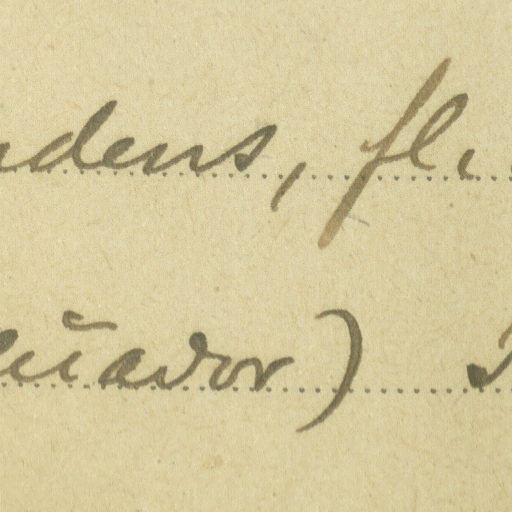 ndens, fl.
cuador)